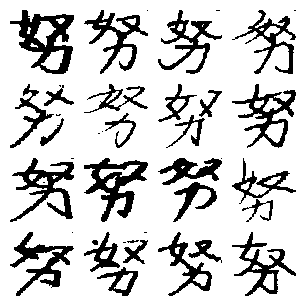 努努努努
努努努努
努努努努
努努努努